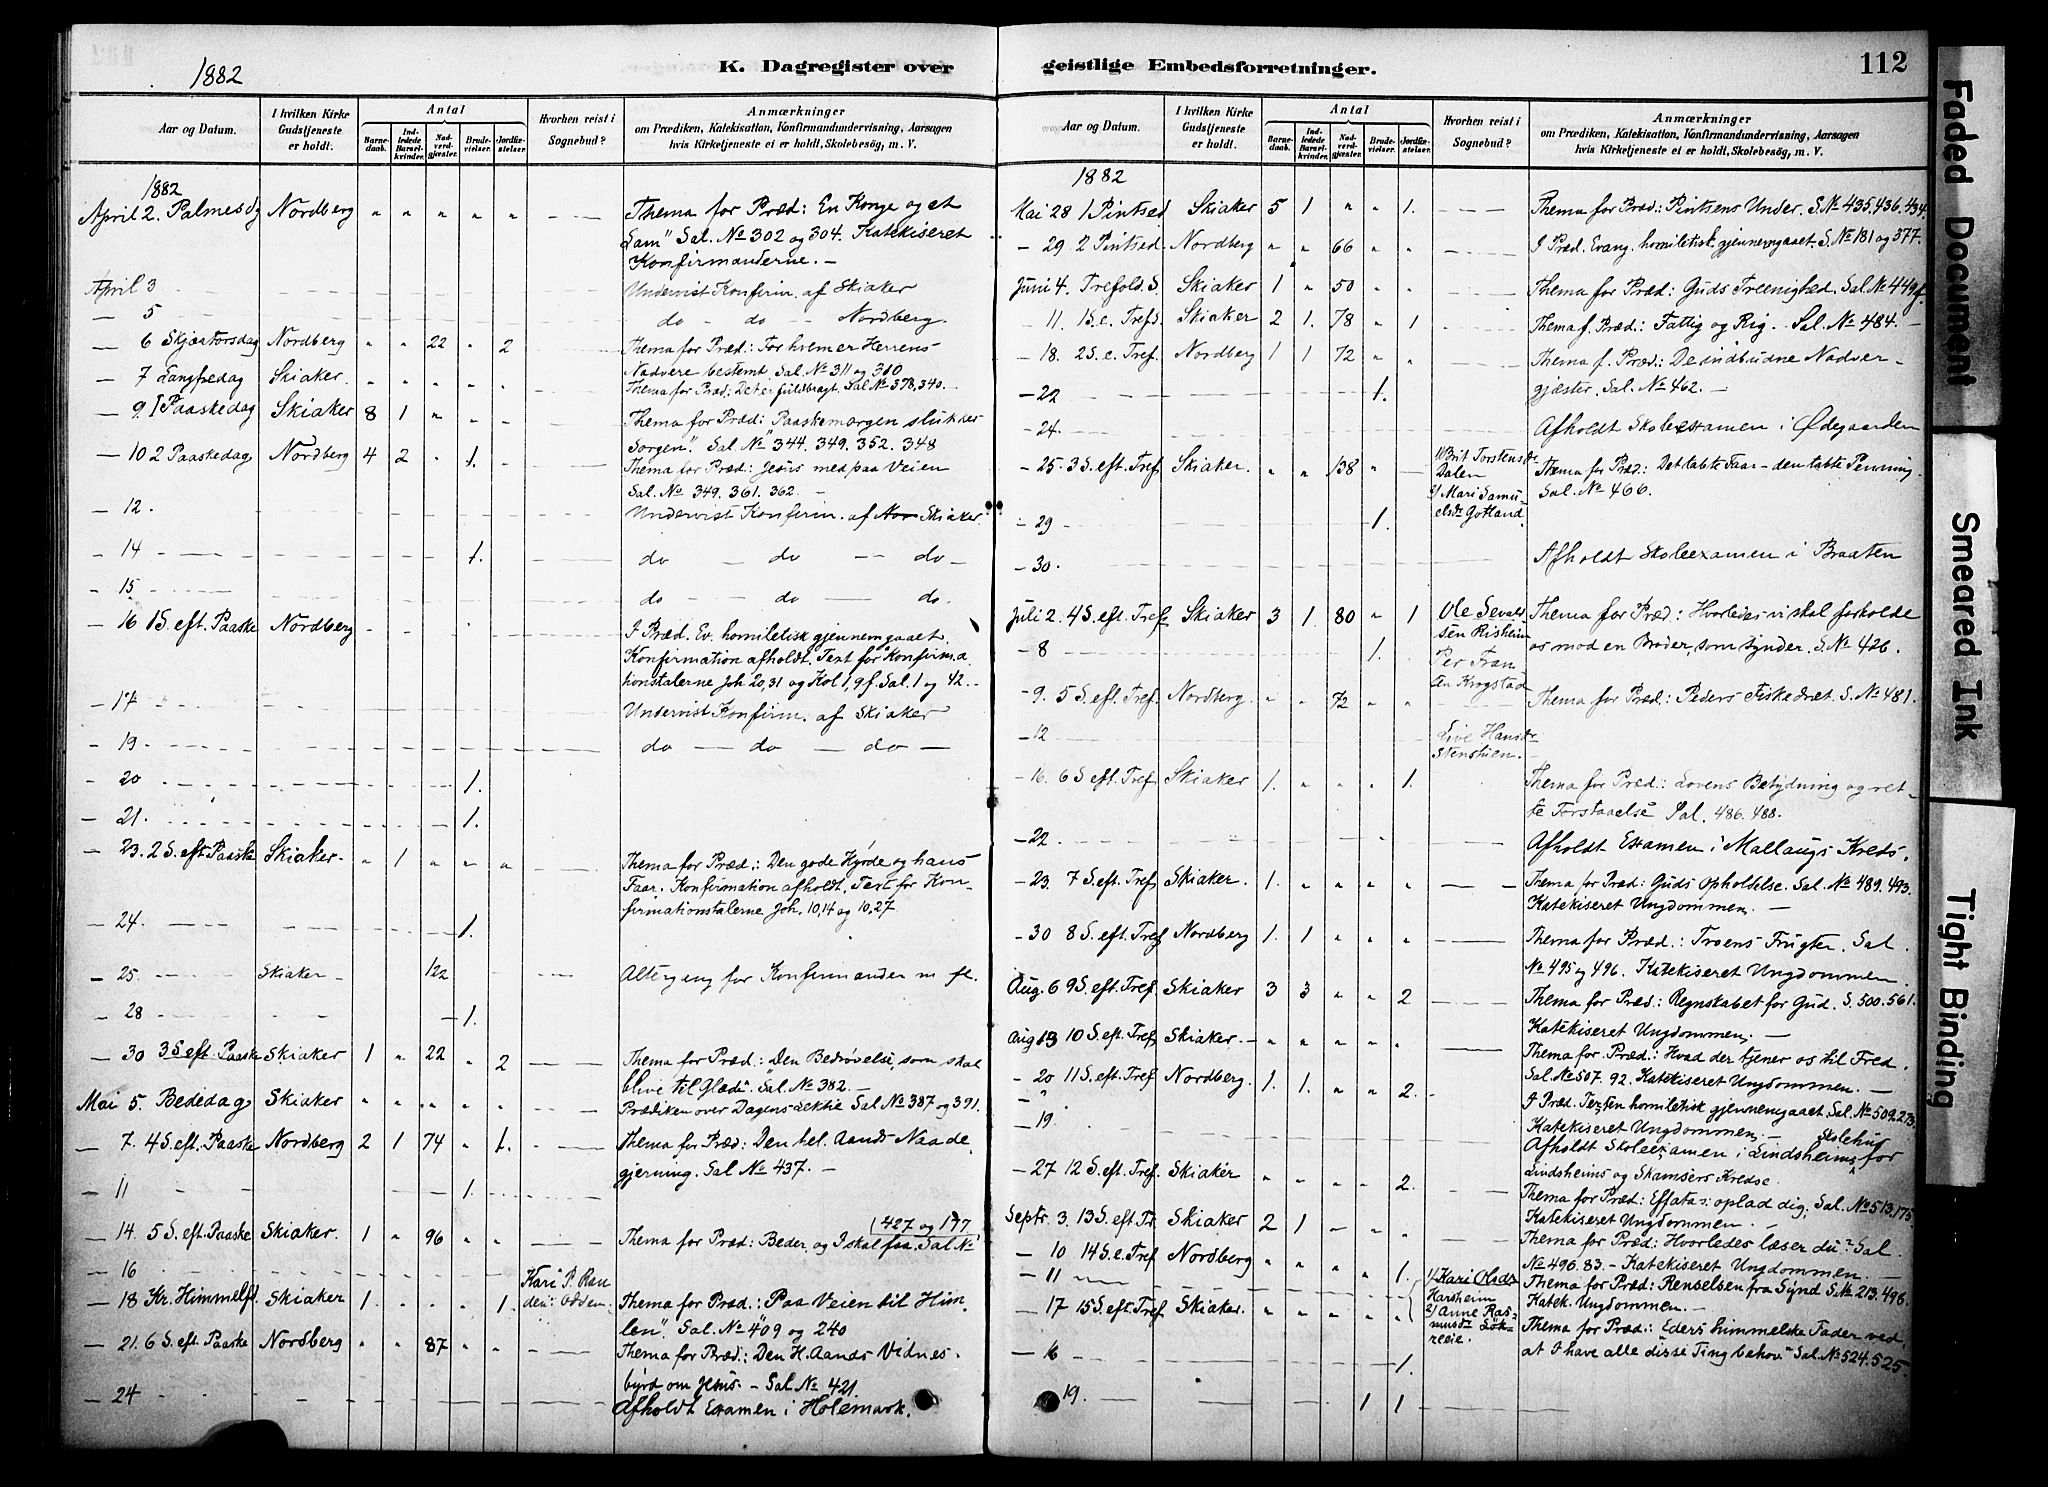 1882
K. Dagregister over
Aar og Datum.
I hvilken Kirke Gudstjeneste er holdt.
Antal
Barnedaab.
Indledede Barselkvinder.
Nadverdgjester.
Brudevielser.
Jordfæstelser.
Hvorhen reist i Sognebud?
Anmærkninger
om Prædiken, Katekisation, Konfirmandundervisning, Aarsagen
hvis Kirketjeneste ei er holdt, Skolebesög, m. V.
1882
April 2. Palmesdg Nordberg " " " " " Thema for Præd: En Konge og et
Lam" Sal. No 302 og 304. Katekiseret
Konfirmanderne. -
April 3 Undervist Konfirm. af Skiaker
- 5 do - do - Nordberg.
- 6 Skjærtorsdag Nordberg " " 22 " 2 Thema for Præd: For hvem er Herrens
Nadvere bestemt Sal. No 311 og 310
- 7 Langfredag Skiaker. " " " " " Thema for Præd: Det er fuldbragt. Sal No 378, 340. -
- 9. 1 Paaskedag Skiaker 8 1 " " " Thema for Præd: "Paaskemorgen slukker
Sorgen". Sal No 344. 349. 352. 348
- 10 2 Paaskedag Nordberg 4 2 - 1. Thema for Præd: Jesus med paa Veien
Sal. No 349. 361. 362. -
- 12. Undervist Konfirm. af Nor Skiaker
- 14 1. do - do - do -
- 15 do - do - do.
- 16 1 S. eft. Paaske Nordberg I Præd. Ev. homiletisk gjennemgaaet.
Konfirmation afholdt. Text for Konfirma
tionstalerne Joh 20,31 og Kol 1,9 f. Sal. 1 og 42. -
- 17 Undervist Konfirm. af Skiaker
- 19. do - do - do -
- 20 1.
- 21. 1.
- 23. 2 S. eft Paaske Skiaker. " 1 " " " Thema for Præd.: Den gode Hyrde og hans
Faar. Konfirmation afholdt. Text for Kon-
firmationstalerne Joh. 10,14 og 10,27
- 24. 1.
- 25. Skiaker - 122 Altergang for Konfirmander m fl.
- 28 1.
- 30 3 S. eft. Paaske Skiaker 1 " 22 " 2 Thema for Præd: "Den Bedrøvelse, som skal
blive til Glæde". Sal. No 382. -
Mai 5. Bededag Skiaker " " " " " Prædiken over Dagens Lektie Sal No 387 og 391.
- 7. 4 S. eft. Paaske Nordberg 2 1 74 " 1. Thema for Præd: Den hel. Aands Naade
gjerning. Sal No 437. -
- 11 1.
(427 og 177)
- 14. 5 S. eft Paaske Skiaker. 1 " 96 " " Thema for Præd: Beder, og I skal faa. Sal No
- 16 Kari P. Ran
den: Odden.
- 18 Kr. Himmelfd Skiaker 1. " " " 1. Thema for Præd: "Paa Veien til Him-
len". Sal. No 409 og 240
- 21. 6 S. eft. Paaske Nordberg " " 87 " " Thema for Præd: Den H. Aands Vidnes-
byrd om Jesus. - Sal No 421.
- 24 Afholdt Examen i Holemark.
geistlige Embedsforretninger.
112
Aar og Datum.
I hvilken Kirke Gudstjeneste er holdt.
Antal
Barnedaab.
Indledede Barselkvinder.
Nadverdgjester.
Brudevielser.
Jordfæstelser.
Hvorhen reist i Sognebud?
Anmærkninger
om Prædiken, Katekisation, Konfirmandundervisning, Aarsagen
hvis Kirketjeneste ei er holdt, Skolebesög, m. V.
1882
Mai 28 1 Pintsed Skiaker 5 1 " " 1. Thema for Præd.: Pintsens Under. S. No 435. 436. 434.
- 29 2 Pintsed. Nordberg " " 66 " " I Præd. Evang. homiletisk gjennemgaaet. S. No 181 og 377.
Juni 4. Trefold. S. Skiaker 1 " 50 " " Thema for Præd: Guds Treenighed. Sal. No 449 f.
- 11. 1 S. e. Tref. Skiaker 2 1. 78 " 1 Thema f. Præd: Fattig og Rig. Sal. No 484. -
- 18. 2 S. e. Tref. Nordberg 1 1 72 " " Thema f. Præd: De indbudne Nadver-
gjæster. Sal. No 462. -
- 22 1.
- 24. Afholdt Skoleexamen i Ødegaarden
- 25. 3 S. eft. Tref. Skiaker. " " 138 " 1/ Brit Torstensdr
Dalen
2/ Mari Samu
elsdr Gotland.
Thema for Præd: Det tabte Faar - den tabte Penning.
Sal. No 466.
- 29 1.
- 30. Afholdt Skoleexamen i Braaten
Juli 2. 4 S. eft. Tref. Skiaker 3 1. 80 " 1 Ole Sevald
sen Risheim
Thema for Præd: Hvorledes vi skal forholde
os mod en Broder, som synder. S. No 426.
- 8 1. Per
Krogstad
- 9. 5 S. eft. Tref. Nordberg. " " 72 " " Thema for Præd: Peders Fiskedræt. S. No 481.
- 12 Live Hansdr
Stenshien.
- 16. 6 S eft. Tref. Skiaker 1. " " " 1. Thema for Præd.: Lovens Betydning og ret-
te Forstaaelse Sal. 486. 488.
- 22. Afholdt Examen i Mallaugs Kreds.
- 23. 7 S. eft. Tref. Skiaker. 1. " " " " Thema for Præd: Guds Opholdelse. Sal. No 489. 493.
Katekiseret Ungdommen. -
- 30 8 S. eft. Tref Nordberg 1. 1 " " " Thema for Præd.: Troens Frugter. Sal.
No 495 og 496. Katekiseret Ungdommen.
Aug. 6 9 S. eft. Tref. Skiaker 3 3 " " 2 Thema for Præd.: Regnskabet for Gud. S. 500. 561.
Katekiseret Ungdommen. -
Aug 13 10 S. eft. Tref. Skiaker. - " " " " " Thema for. Præd: Hvad der tjener os til Fred.
Sal. No 507. 92. Katekiseret Ungdommen. -
- 20 11 S. eft. Tref. Nordberg. 1. 1. " " 2. I Præd. Texten homiletisk gjennemgaaet. Sal. No 509. 273.
Katekiseret Ungdommen. -
- 19. Afholdt Skoleexamen i Lindsheims Skolehus for
Lindsheims og Skamsers Kredse.
- 27 12 S. eft. Tref. Skiaker " " " " 2. Thema for Præd: Effata: oplad dig; Sal. No 513. 175
Katekiseret Ungdommen. -
Septr. 3. 13 S. eft Tr. Skiaker 2 1 - " " Thema for Præd: Hvorledes læser du? Sal.
No 496. 83. - Katekiseret Ungdommen. -
- 10 14 S. e. Tref Nordberg " " " " " Thema for Præd: Renselsen fra Synd S. No 213. 496
Katek. Ungdommen. -
- 11 1. 1/ Kari Olsdr
Harsheim
2/ Anne Ras-
musdr Løk-
reie.
- 17 15 S. eft. Tref Skiaker. " " " " " Thema for Præd.: "Eders himmelske Fader ved,
at I have alle disse Ting behov." Sal. No 524. 525.
- 16 1.
- 19. 1 1
Faded Document
Smeared Ink
Tight Binding